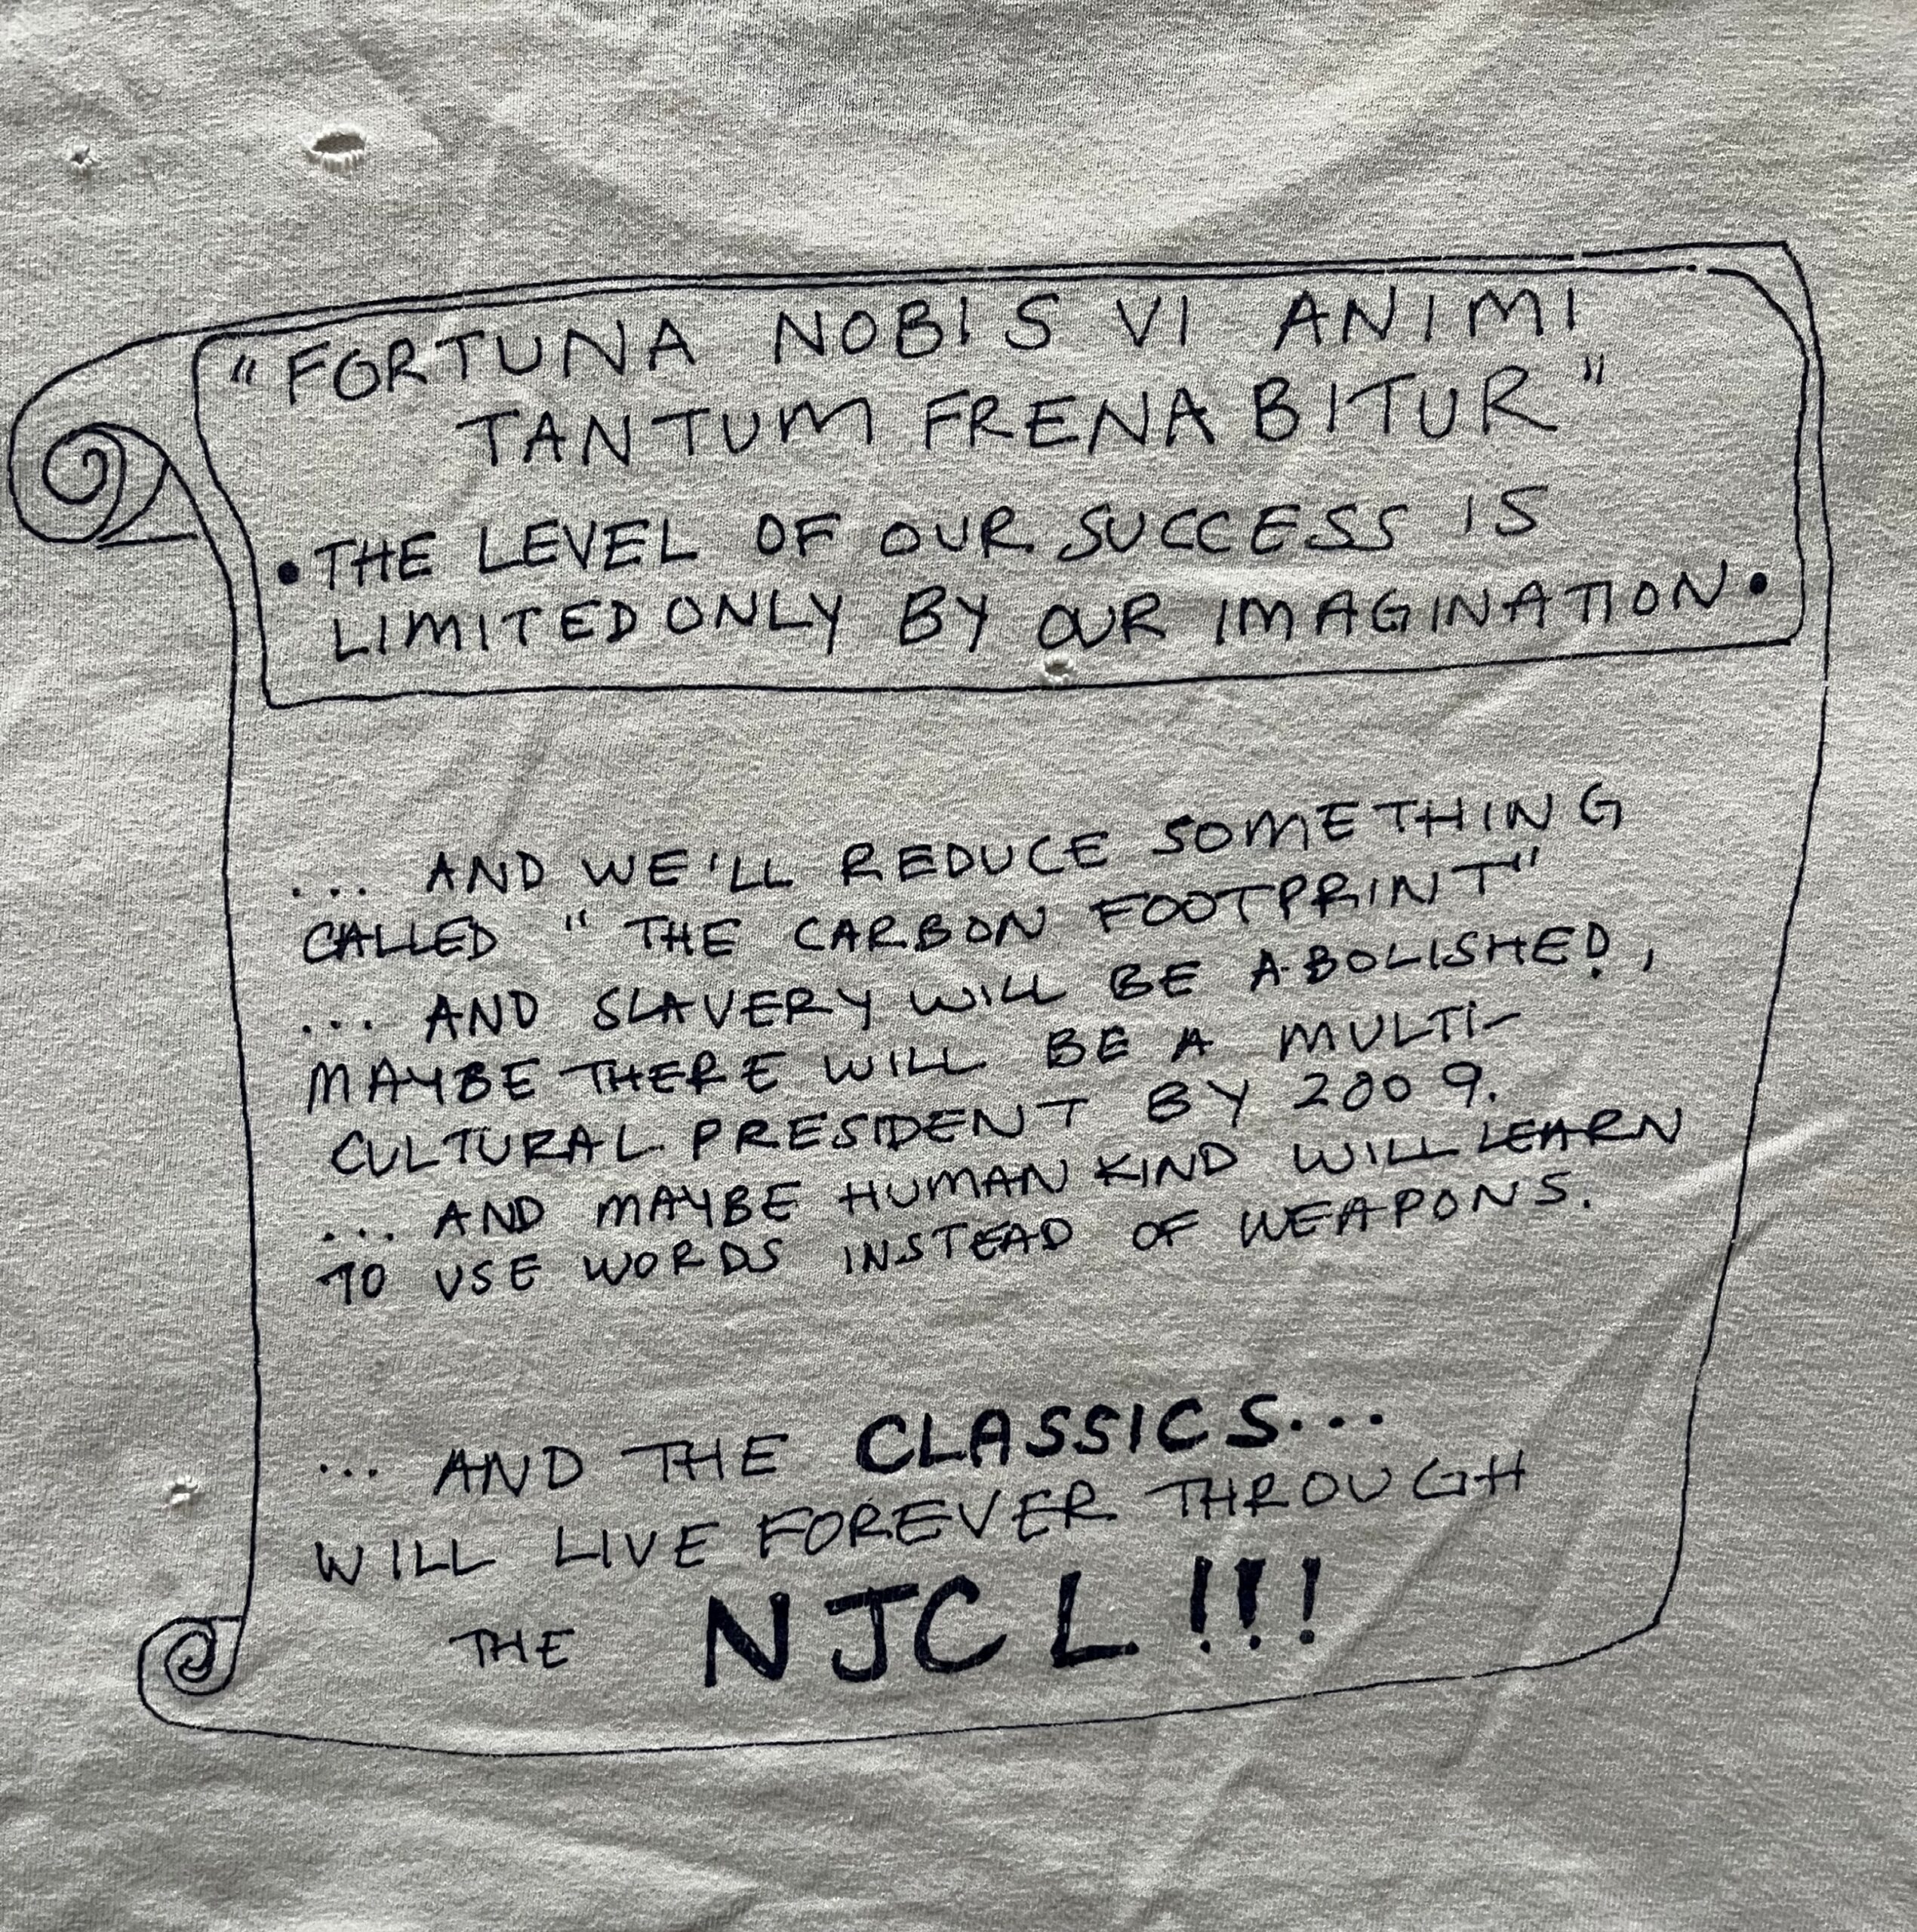 "FORTUNA NOBIS VI ANIMI
TANTUM FRENABITUR"
•THE LEVEL OF OUR SUCCESS IS
LIMITED ONLY BY OUR IMAGINATION•
... AND WE'LL REDUCE SOMETHING
CALLED "THE CARBON FOOTPRINT"
... AND SLAVERY WILL BE ABOLISHED,
MAYBE THERE WILL BE A MULTI-
CULTURAL PRESIDENT BY 2009.
... AND MAYBE HUMANKIND WILL LEARN
TO USE WORDS INSTEAD OF WEAPONS.
... AND THE CLASSICS...
WILL LIVE FOREVER THROUGH
THE NJCL!!!